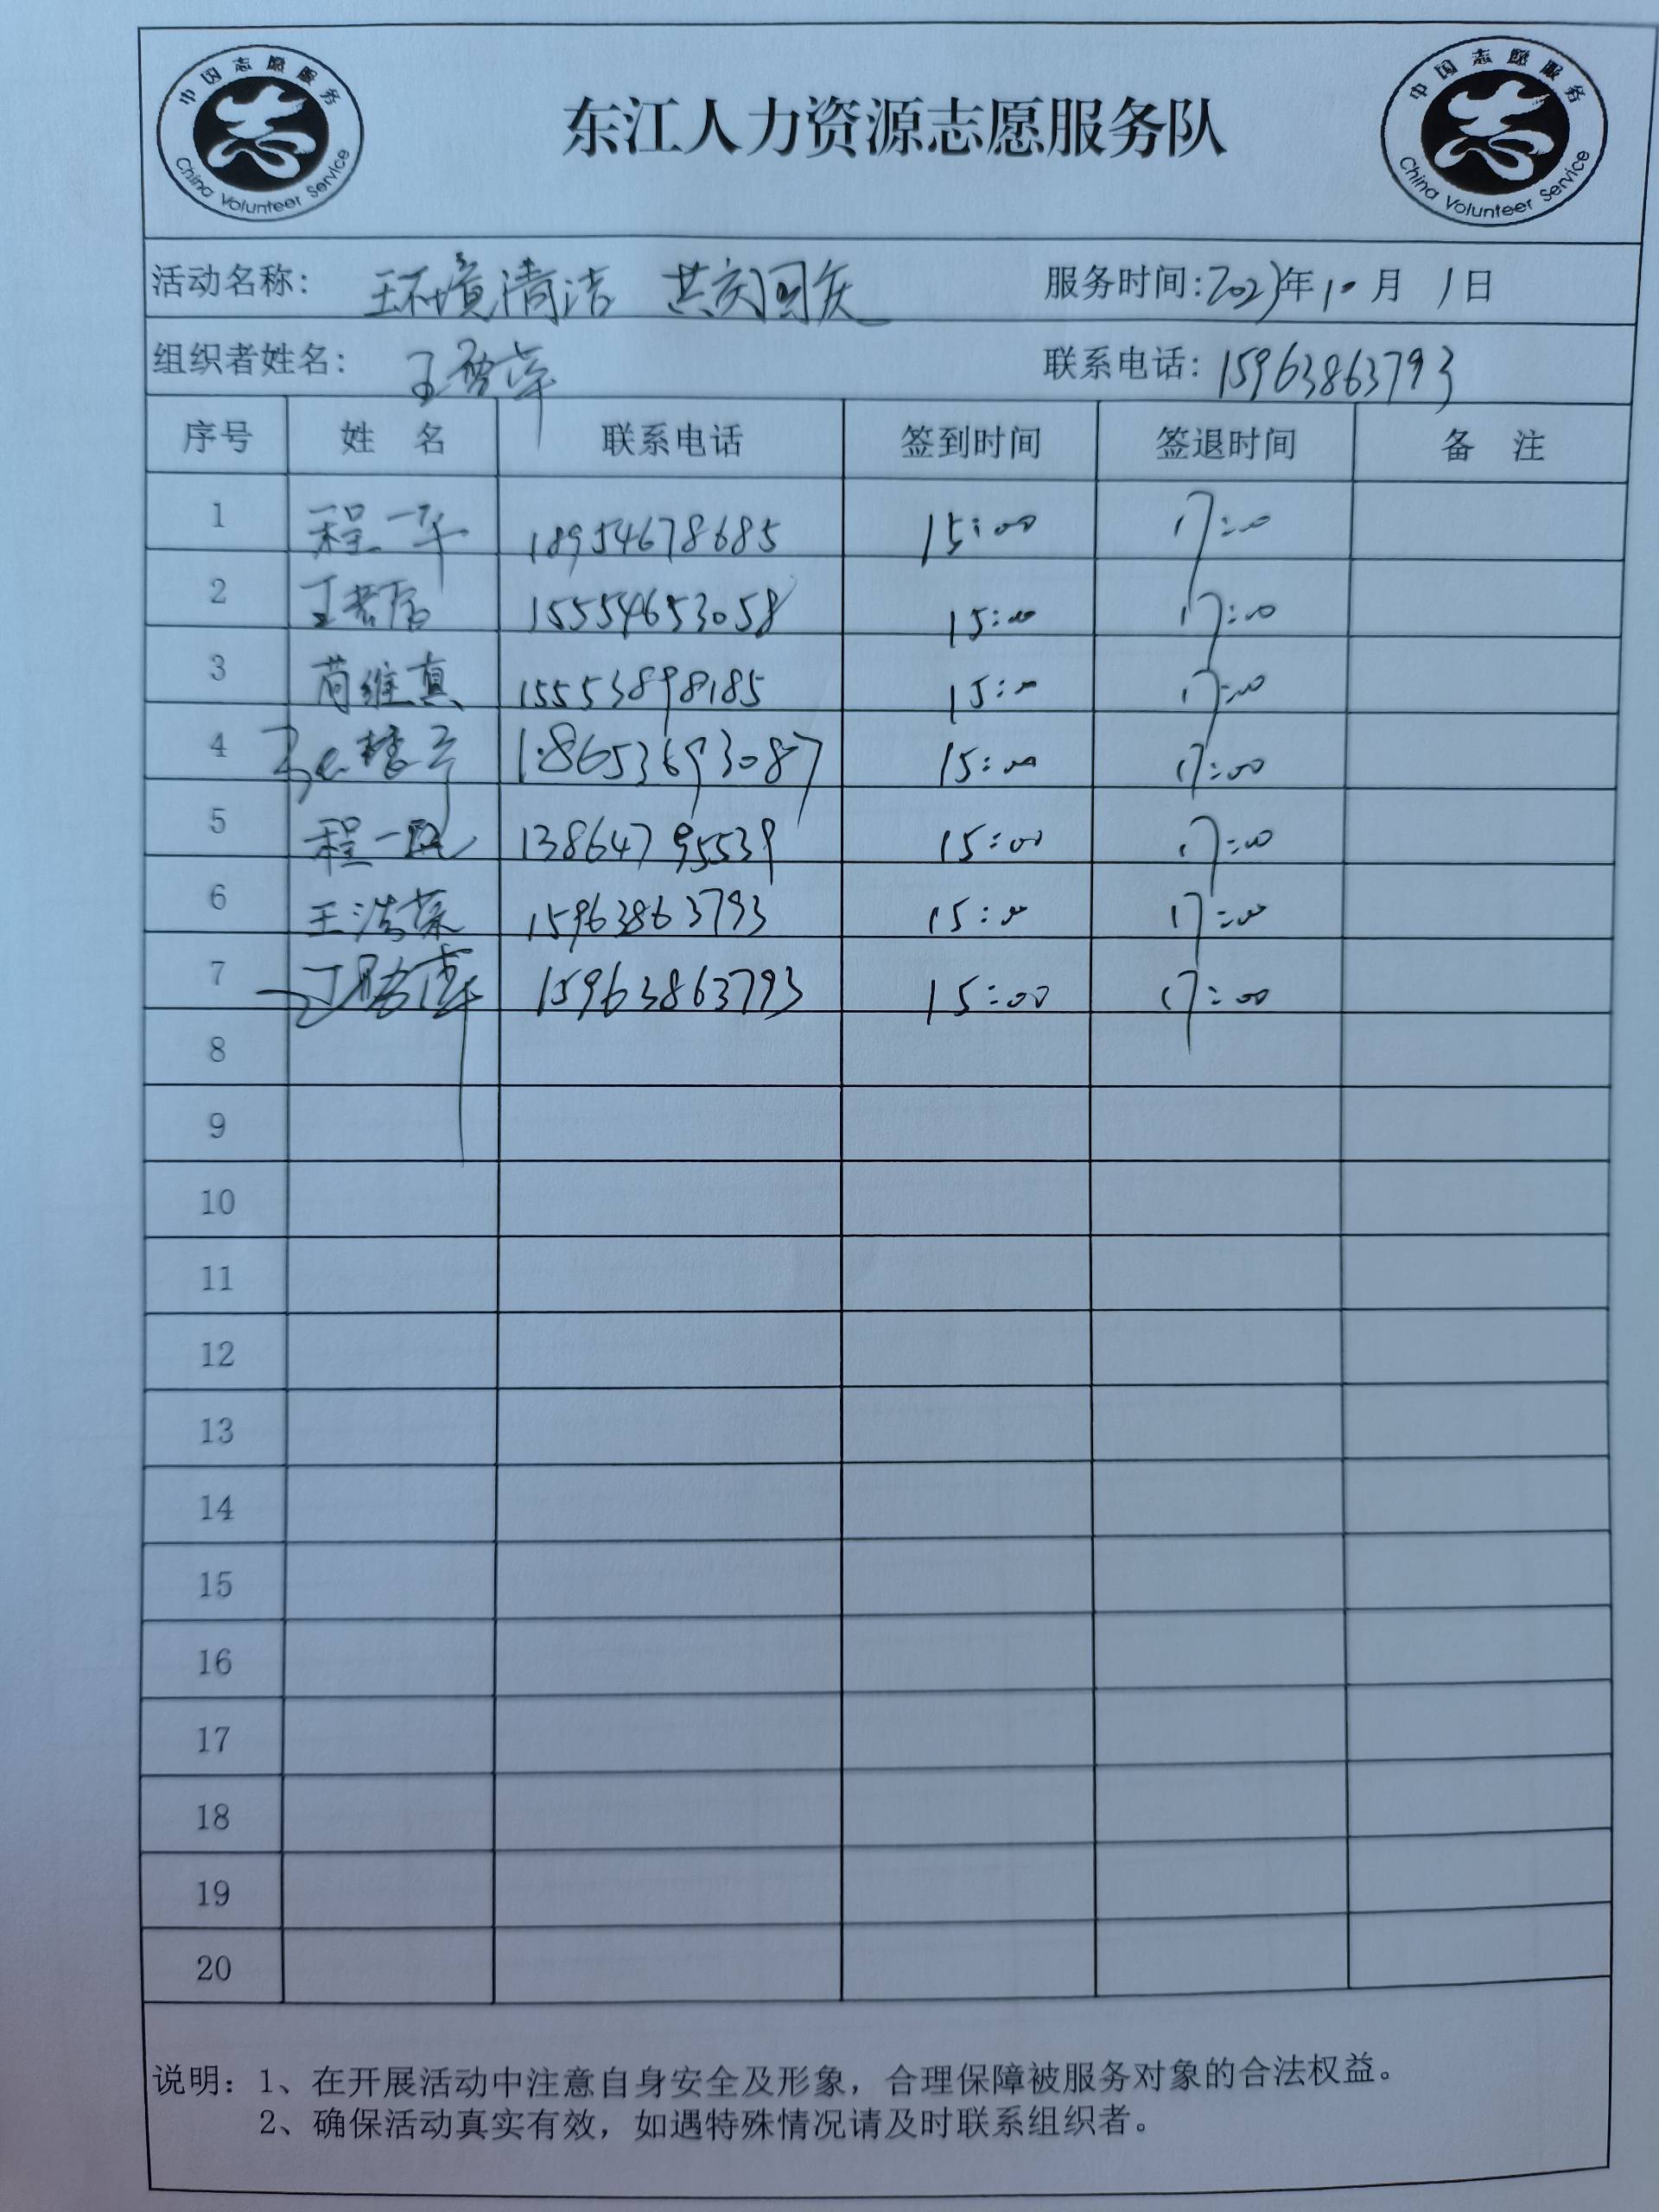 中国志愿服务
China Volunteer Service
东江人力资源志愿服务队
中国志愿服务
China Volunteer Service
活动名称: 环境清洁 共庆国庆 服务时间:2023年10月1日
组织者姓名: 王 联系电话: 15963863793
序号 姓 名 联系电话 签到时间 签退时间 备 注
1 程一华 18954678685 15:00 17:00
2 王君 15554653058 15:00 17:00
3 苘维真 15553898185 15:00 17:00
4 18653693087 15:00 17:00
5 程一 13864795539 15:00 17:00
6 王浩荣 15963863793 15:00 17:00
7 15963863793 15:00 17:00
8
9
10
11
12
13
14
15
16
17
18
19
20
说明: 1、在开展活动中注意自身安全及形象，合理保障被服务对象的合法权益。
2、确保活动真实有效，如遇特殊情况请及时联系组织者。